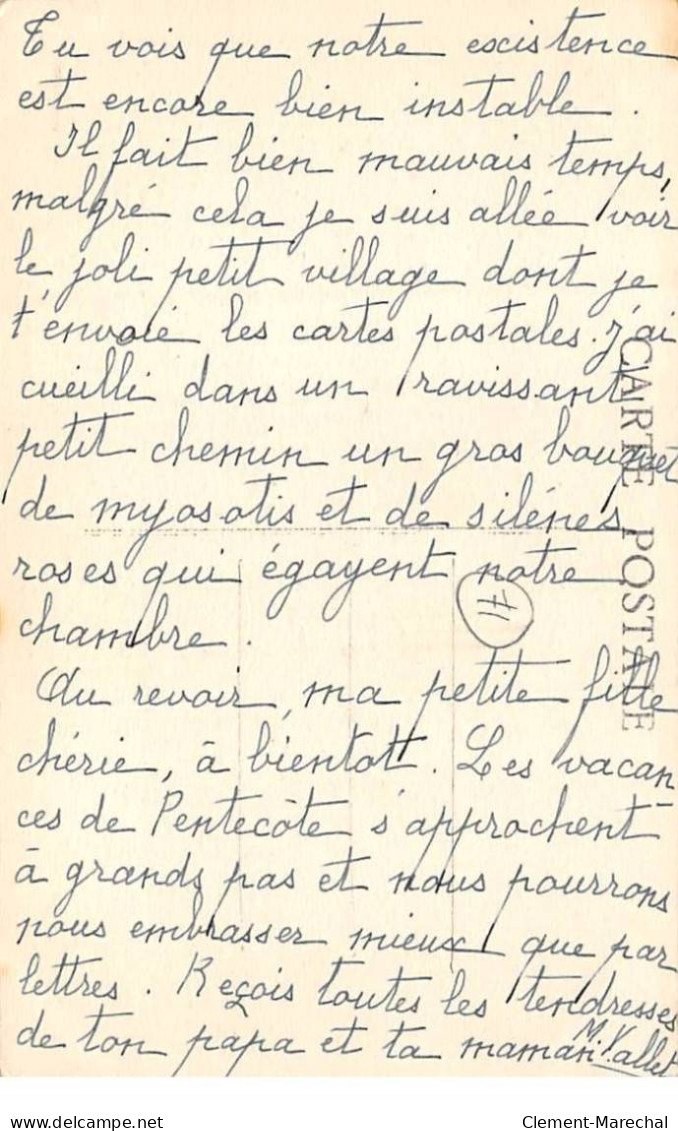 Tu vois que notre excistence
est encore bien instable.
Il fait bien mauvais temps,
malgré cela je suis allée voir
le joli petit village dont je
t'envoie les cartes postales. J'ai
cueilli dans un ravissant
petit chemin un gros bouquet
de myosotis et de silénes
roses qui égayent notre
chambre.
Au revoir, ma petite fille
chérie, à bientôt. Les vacan-
ces de Pentecôte s'approchent
à grands pas et nous pourrons
nous embrasser mieux que par
lettres. Reçois toutes les tendresses
de ton papa et ta maman.
M. Vallet
CARTE POSTALE
71
delcampe.net
Clement-Marechal